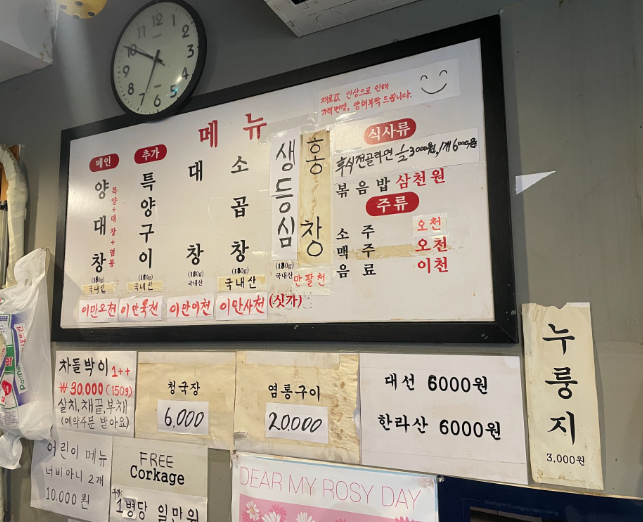 재료값 인상으로 인해
가격변동, 양해부탁드립니다.
메뉴
메인
양대창
특양+대창+염통
(180g)
국내산
이만오천
추가
특양구이
(180g)
국내산
이만육천
대창
(180g)
국내산
이만이천
소곱창
(180g)
국내산
이만사천
생등심
(180g)
국내산
(싯가)
홍창
만팔천
식사류
후식전골라면 ½ 3000원, 1개 6000원
볶음밥 삼천원
주류
소주 오천
맥주 오천
음료 이천
차돌박이 1++
₩30.000 (150g)
살치, 채끝, 부채
(예약주문 받아요)
청국장
6,000
염통구이
20.000
대선 6000원
한라산 6000원
누룽지
3,000원
어린이 메뉴
너비아니 2개
10.000원
FREE
Corkage
1병당 일만원
DEAR MY ROSY DAY